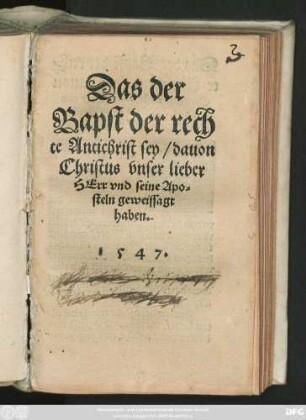 3
Das der
Bapst der rech
te Antichrist sey / dauon
Christus vnser lieber
HErr vnd seine Apo-
steln geweissagt
haben.
1547.